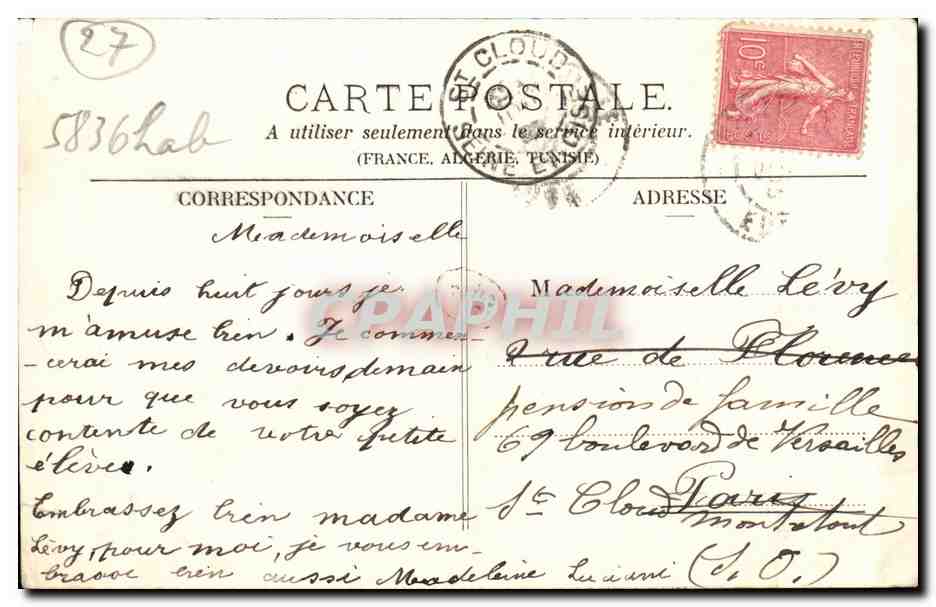 27
5836 Lab
CARTE POSTALE.
A utiliser seulement dans le service intérieur.
(FRANCE, ALGÉRIE, TUNISIE)
ST CLOUD
SEINE ET OISE
10c
CORRESPONDANCE
Mademoiselle
Depuis huit jours je
m'amuse bien. Je commen-
-cerai mes devoirs demain
pour que vous soyez
contente de votre petite
élève.
Embrassez bien madame
Lévy, pour moi, je vous em-
brasse bien aussi Madeleine Luciani
ADRESSE
Mademoiselle Lévy
2 rue de Florence
pension de famille
69 boulevard de Versailles
St Cloud Paris
Montretout
(S. O.)
CPAPHIL